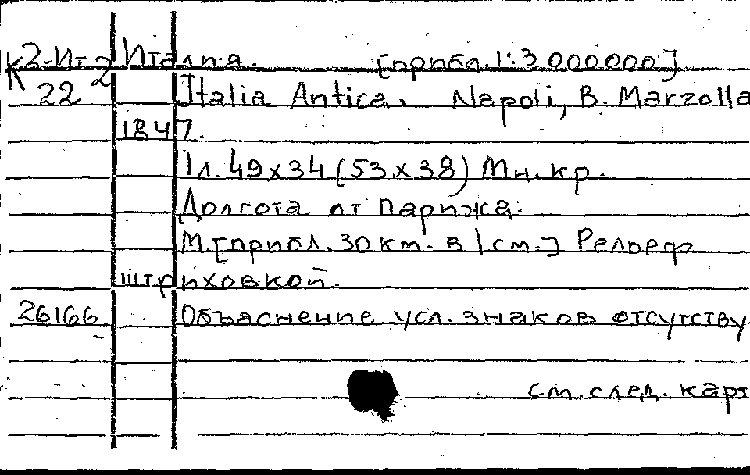 К2-Ит 2 Италия. [прибл. 1:3 000000]
22 Italia Antica. Napoli, B. Marzolla
1847.
1 л. 49х34 (53х38) Мн. кр.
Долгота от Парижа.
М. [прибл. 30 км. в 1 см.] Рельеф
штриховкой.
26166 Объяснение усл. знаков отсутству
см. след. карт